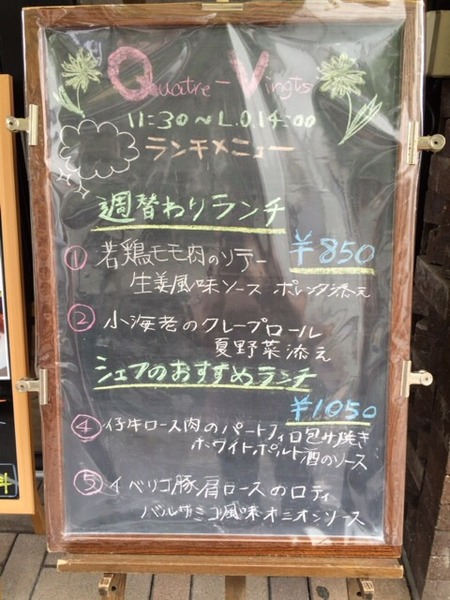 Quatre-Vingts
11:30～L.O.14:00
ランチメニュー
週替わりランチ
① 若鶏モモ肉のソテー ￥850
生姜風味ソース ポレンタ添え
② 小海老のクレープロール
夏野菜添え
シェフのおすすめランチ
￥1050
④ 仔牛ロース肉のパートフィロ包み焼き
ホワイトポルト酒のソース
⑤ イベリコ豚肩ロースのロティ
バルサミコ風味オニオンソース
料